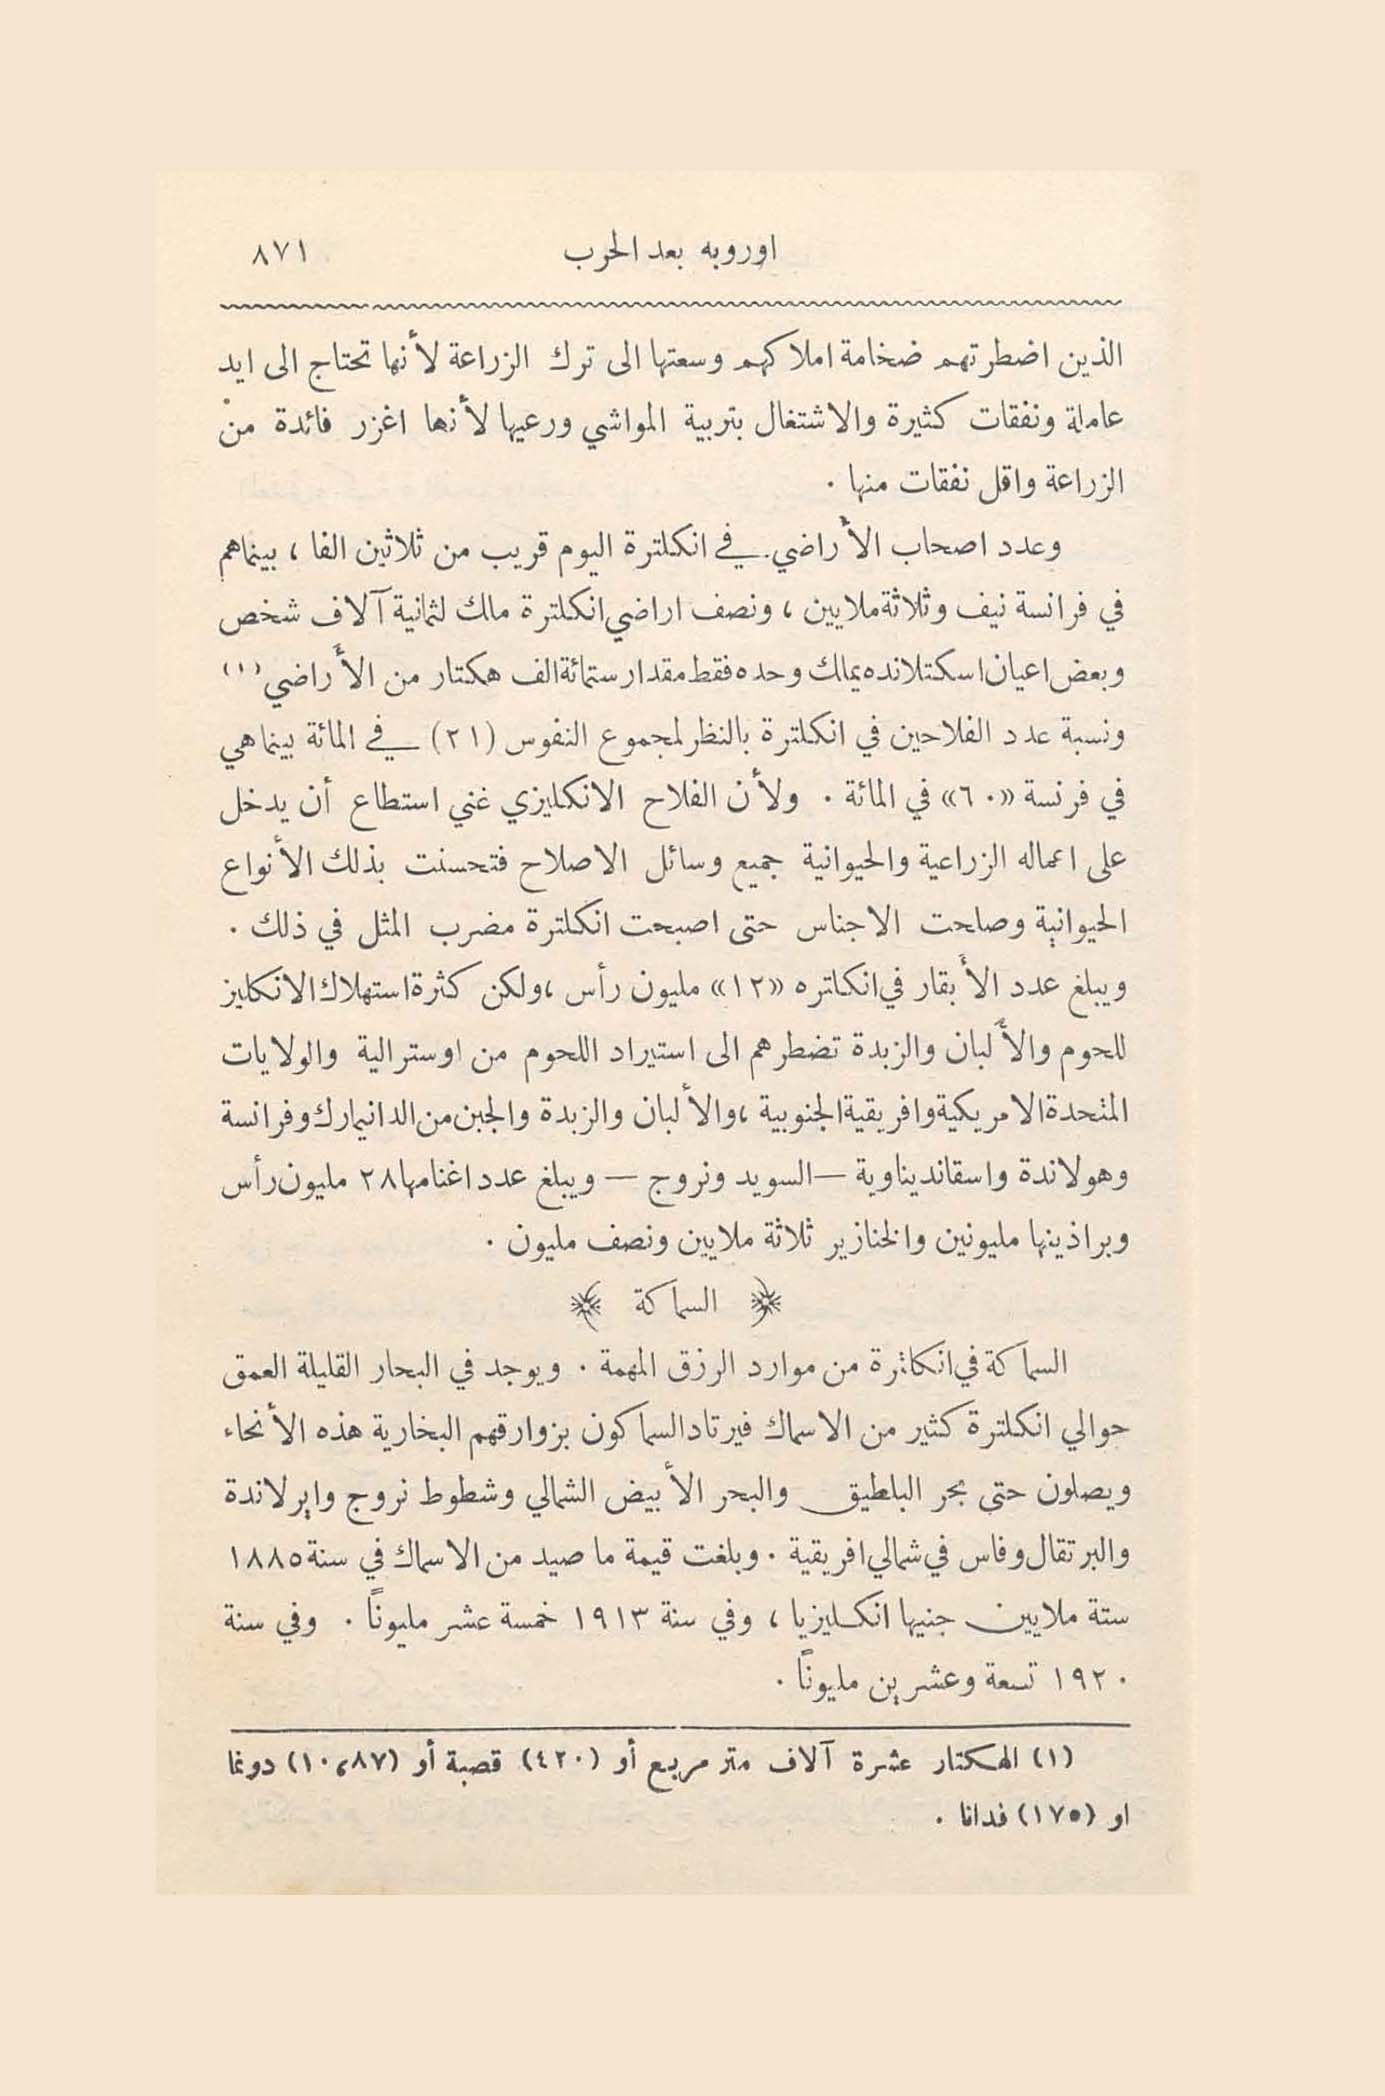 اوروبه بعد الحرب ٨٧١
الذين اضطرتهم ضخامة املاكهم وسعتها الى ترك الزراعة لأنها تحتاج الى ايد
عاملة ونفقات كثيرة والاشتغال بتربية المواشي ورعيها لأنها اغزر فائدة من
الزراعة واقل نفقات منها .
وعدد اصحاب الأراضي في انكلترة اليوم قريب من ثلاثين الفا ، بينماهم
في فرانسة نيف وثلاثة ملايين ، ونصف اراضي انكلترة مالك لثمانية آلاف شخص
وبعض اعيان اسكتلانده يملك وحده فقط مقدار ستمائة الف هكتار من الأراضي (١)
ونسبة عدد الفلاحين في انكلترة بالنظر لمجموع النفوس (٢١) في المائة بينما هي
في فرنسة «٦٠» في المائة . ولأن الفلاح الانكليزي غني استطاع أن يدخل
على اعماله الزراعية والحيوانية جميع وسائل الاصلاح فتحسنت بذلك الأنواع
الحيوانية وصلحت الاجناس حتى اصبحت انكلترة مضرب المثل في ذلك .
ويبلغ عدد الأبقار في انكلتره «١٢» مليون رأس ، ولكن كثرة استهلاك الانكليز
للحوم والألبان والزبدة تضطرهم الى استيراد اللحوم من اوسترالية والولايات
المتحدة الامريكية وافريقية الجنوبية ، والألبان والزبدة والجبن من الدانيمارك وفرانسة
وهولاندة واسقانديناوية — السويد ونروج — ويبلغ عدد اغنامها ٢٨ مليون رأس
وبراذينها مليونين والخنازير ثلاثة ملايين ونصف مليون .
﴿ السماكة ﴾
السماكة في انكلترة من موارد الرزق المهمة . ويوجد في البحار القليلة العمق
حوالي انكلترة كثير من الاسماك فيرتاد السماكون بزوارقهم البخارية هذه الأنحاء
ويصلون حتى بحر البلطيق والبحر الأبيض الشمالي وشطوط نروج وايرلاندة
والبرتقال وفاس في شمالي افريقية . وبلغت قيمة ما صيد من الاسماك في سنة ١٨٨٥
ستة ملايين جنيها انكليزيا ، وفي سنة ١٩١٣ خمسة عشر مليوناً . وفي سنة
١٩٢٠ تسعة وعشرين مليوناً .
(١) الهكتار عشرة آلاف متر مربع أو (٤٢٠) قصبة أو (١٠،٨٧) دونما
او (١٧٥) فدانا .